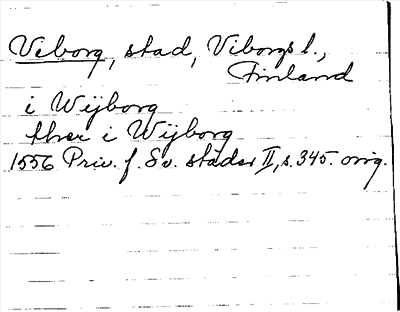 Viborg, stad, Viborgs l.,
Finland
i Wijborg
ther i Wijborg
1556 Priv. f. Sv. städer II, s. 345. orig.